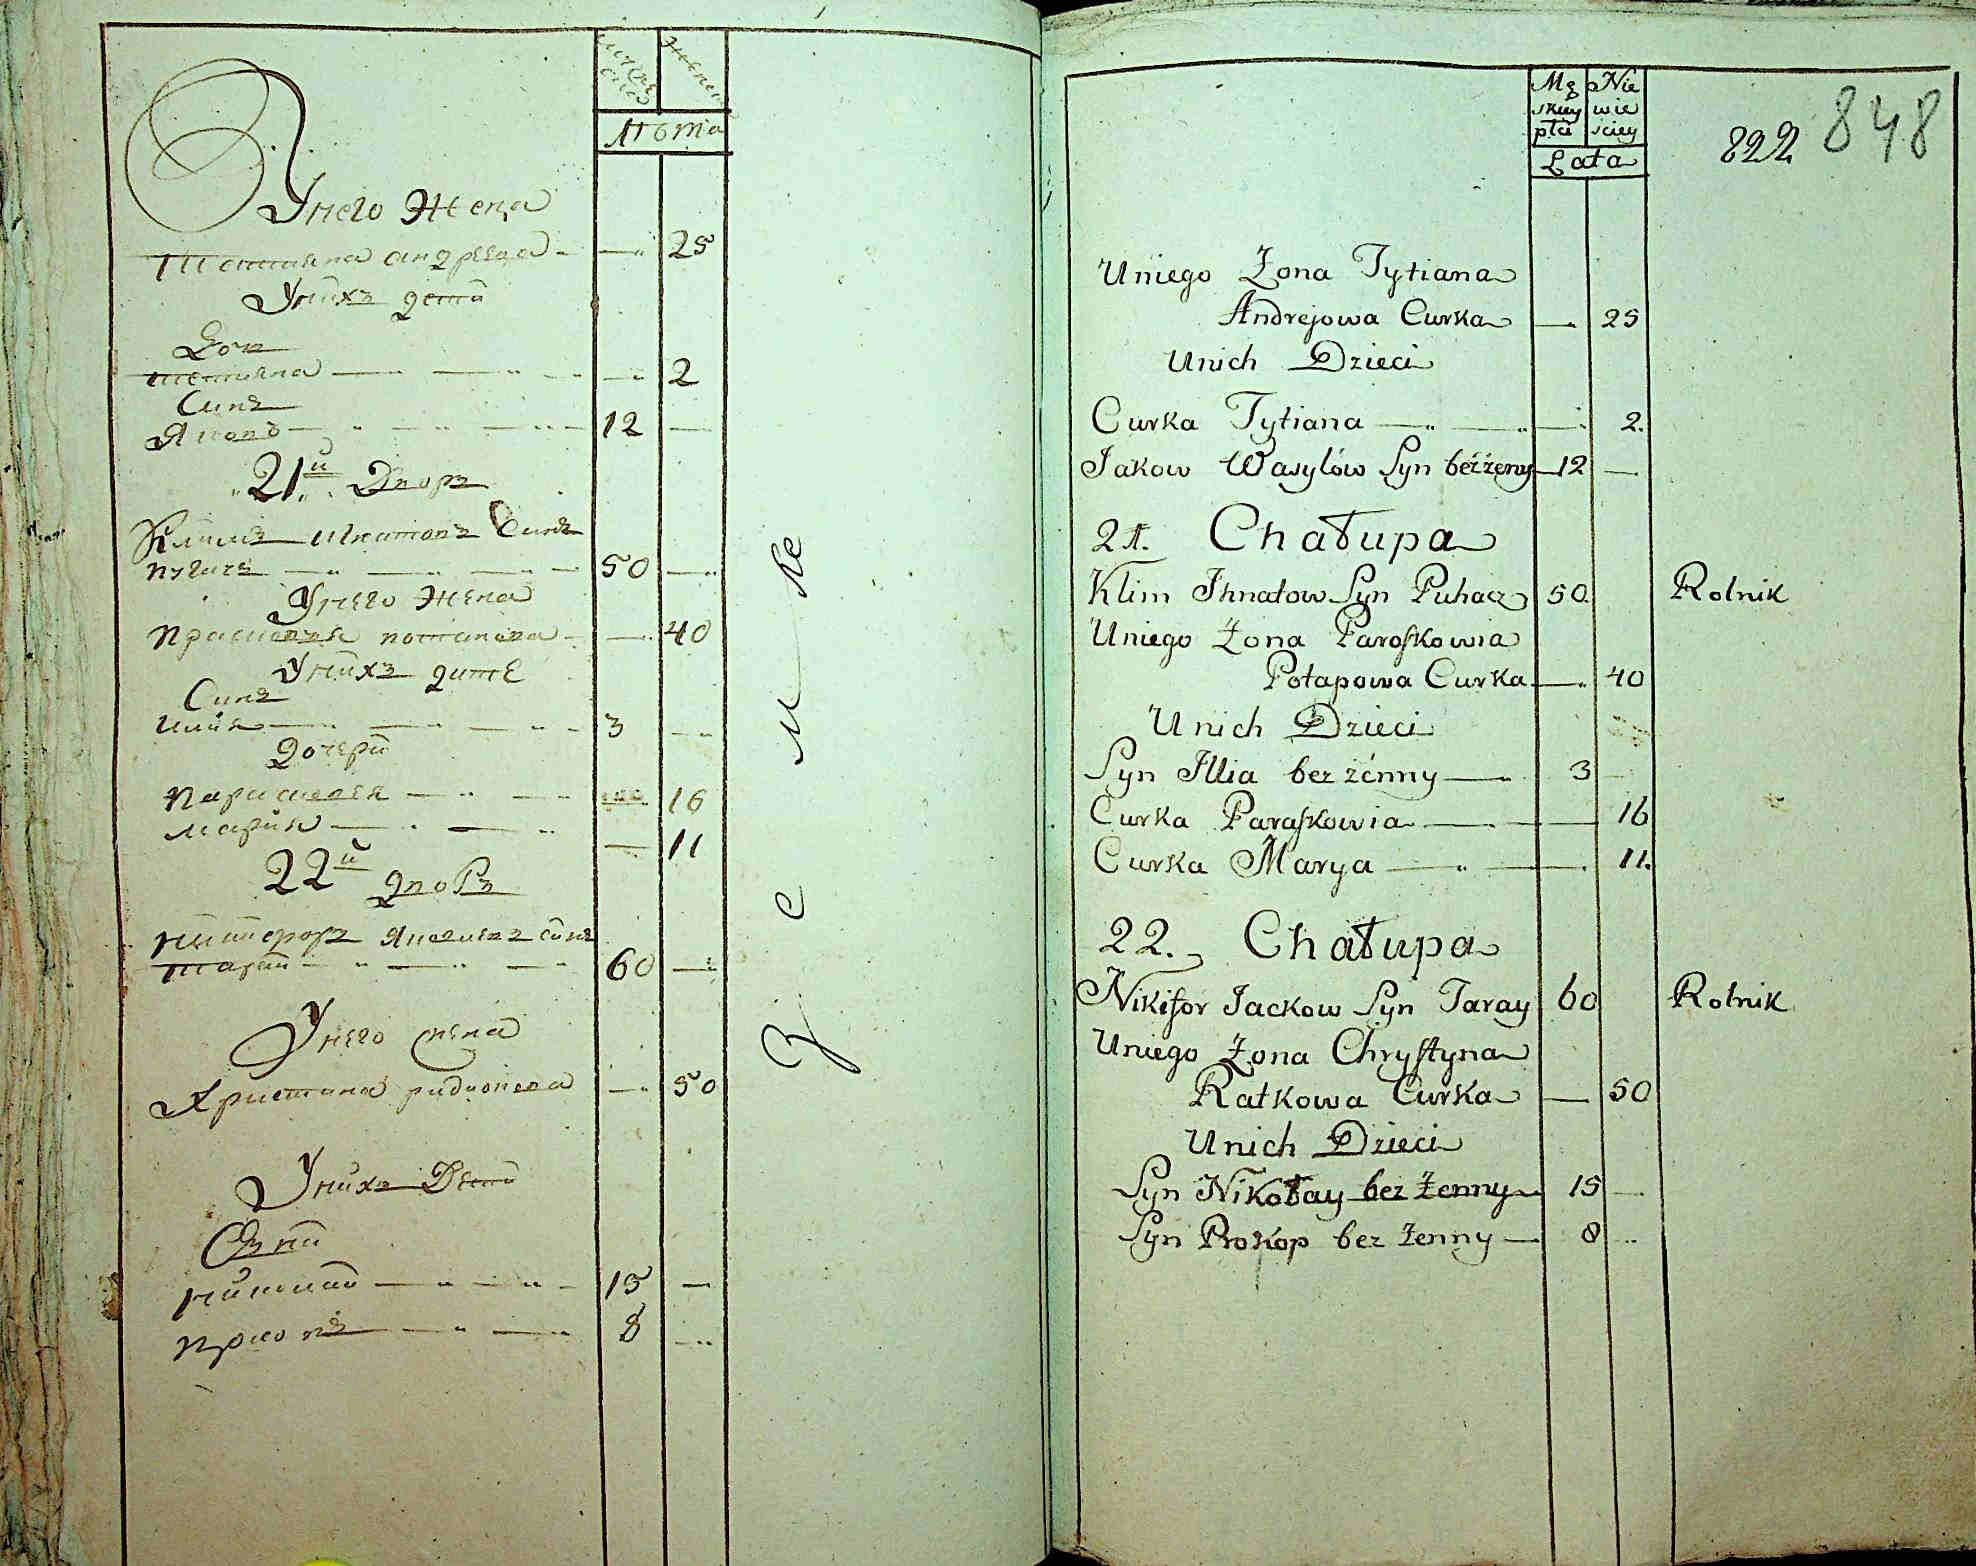 Мужеска
Женска
Лета
Унего Жена
Татияна андреева 25
Унихъ дети
Доч
татияна 2
Синъ
Яковъ 12
21й Дворъ
Климъ Игнатовъ Синъ
пугачъ 50
Унего Жена
Прасковья потапова 40
Унихъ дите
Синъ
илия 3
дочери
Парасковя 16
мария 11
22й дворъ
никифоръ Яковлевъ синъ
тарай 60
Унего жена
Христина 50
Унихъ Дети
Сыни
николай 15
прокопъ 8
Męskiey płci
Niewieściey
Lata
822 848
Uniego Żona Tytiana
Andrejowa Curka 25
Unich Dzieci
Curka Tytiana 2.
Jakow Wasylów Syn beżżeny 12
21. Chałupa
Klim Ihnatow Syn Puhacz 50. Rolnik
Uniego Żona Paroskowia
Potapowa Curka 40
Unich Dzieci
Syn Illia bez żenny 3
Curka Paraskowia 16
Curka Marya 11.
22. Chałupa
Nikifor Jackow Syn Taray 60 Rolnik
Uniego Żona Chrystyna
Ratkowa Curka 50
Unich Dzieci
Syn Nikołay bez Żenny 15
Syn Prokop bez żenny 8